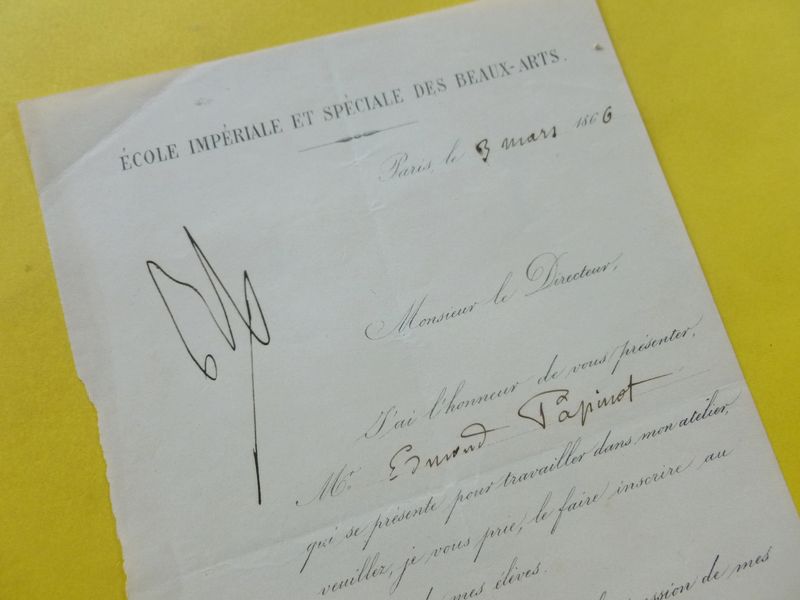 ÉCOLE IMPÉRIALE ET SPÉCIALE DES BEAUX-ARTS.
Paris, le 3 mars 1866
Monsieur le Directeur,
J'ai l'honneur de vous présenter,
Mr. Edmond Papinot
qui se présente pour travailler dans mon atelier,
veuillez, je vous prie, le faire inscrire au
de mes élèves.
de mes